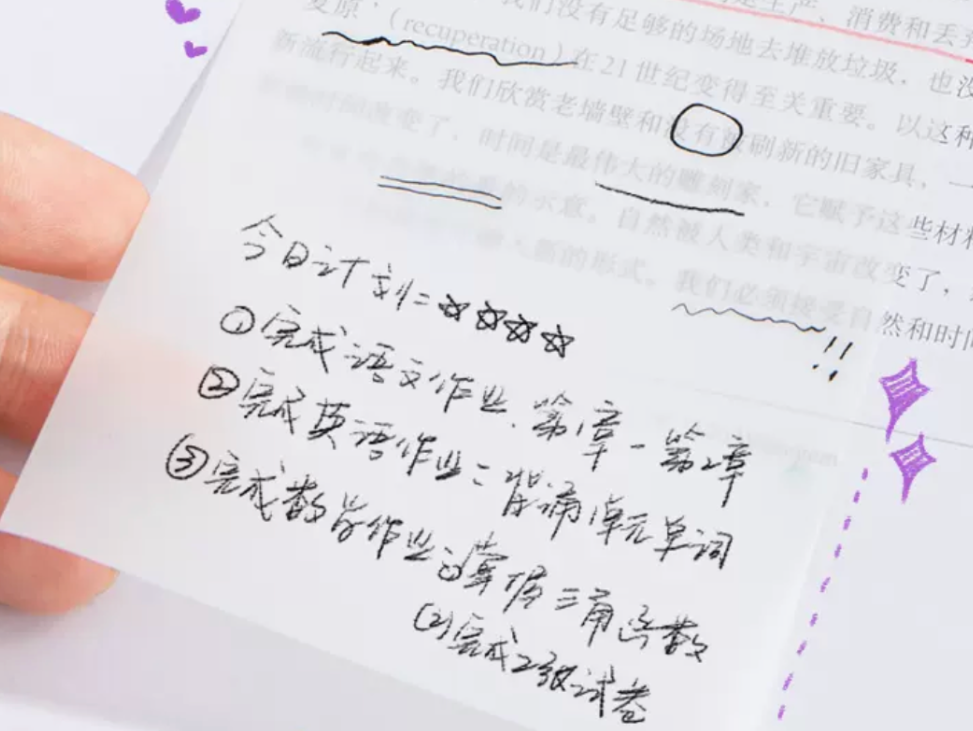 是生产、消费和丢弃
复原'（recuperation）我们没有足够的场地去堆放垃圾，也没
新流行起来。在21世纪变得至关重要。以这种
我们欣赏老墙壁和没有被刷新的旧家具，一
改变了，时间是最伟大的雕刻家，它赋予这些材料
的示意。自然被人类和宇宙改变了，
新的形式。我们必须接受自然和时间
!!
今日计划：☆☆☆☆
① 完成语文作业.第1章-第2章
② 完成英语作业：背诵1单元单词
③ 完成数学作业：(1)掌握三角函数
(2)完成2张试卷